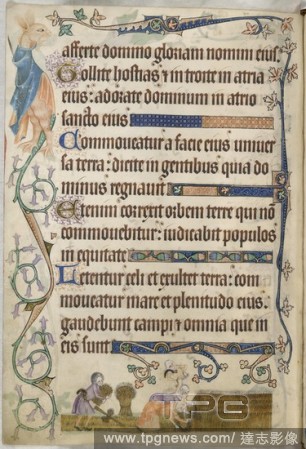 afferte domino gloriam nomini eius.
Tollite hostias ⁊ in troite in atria
eius: adorate dominum in atrio
sancto eius
Commoueatur a facie eius uniuer
sa terra: dicite in gentibus quia do
minus regnauit
Etenim correxit orbem terre qui nō
commouebitur: iudicabit populos
in equitate
Letentur celi et exultet terra: com
moueatur mare et plenitudo eius.
gaudebunt campi ⁊ omnia que in
eis sunt
TPG
www.tpgnews.com/達志影像